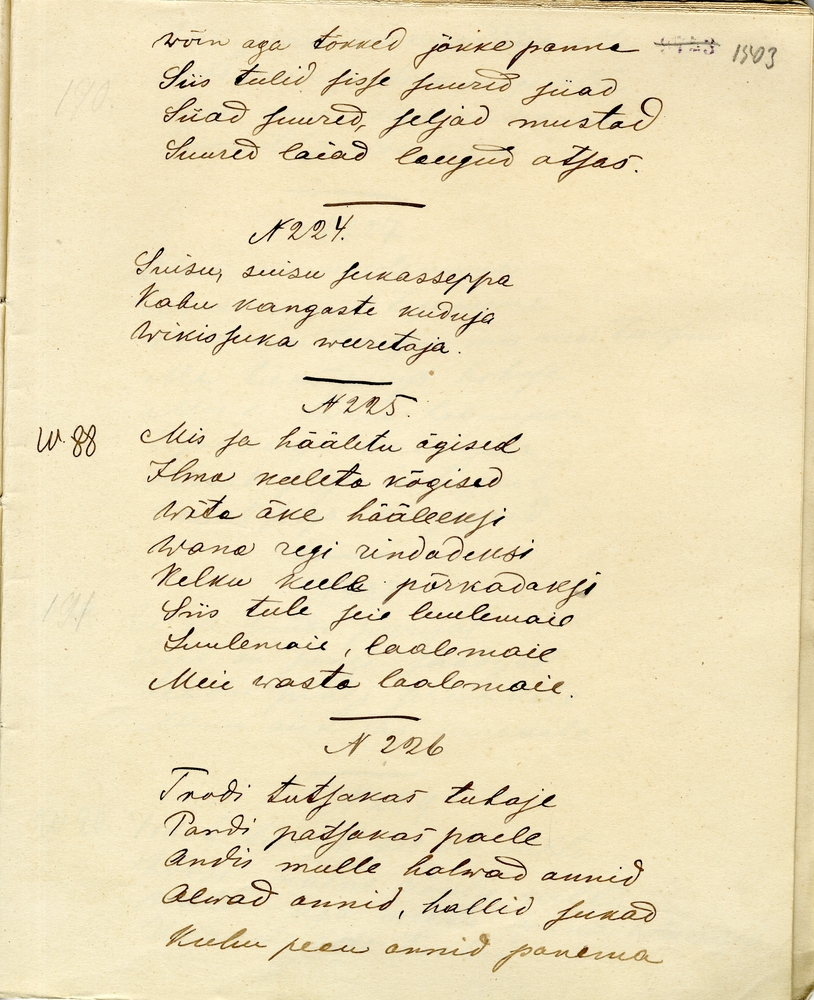 wõin aga tokked jõkke panna 1503
Siis tulid sisse suured siiad
Siiad suured, seljad mustad
Suured laiad laugud otsas.
N 224.
Suisu, suisu sukasseppa
Kabu kangaste kuduja
Wikissuka weeretaja.
N 225.
W. 88 Mis sa hääletu ägised
Ilma keeleta kõgised
Wõta äke hääleeksi
Wana regi rindadeksi
Kelku keele põrkadaksi
Siis tule seie luulemaie
Luulemaie, laalemaie
Meie wasta laalemaie.
N 226
Trodi tutsakas tuhaje
Pandi patsakas paele
Andis mulle halwad annid
Alwad annid, hallid sukad
Kuhu pean annid panema